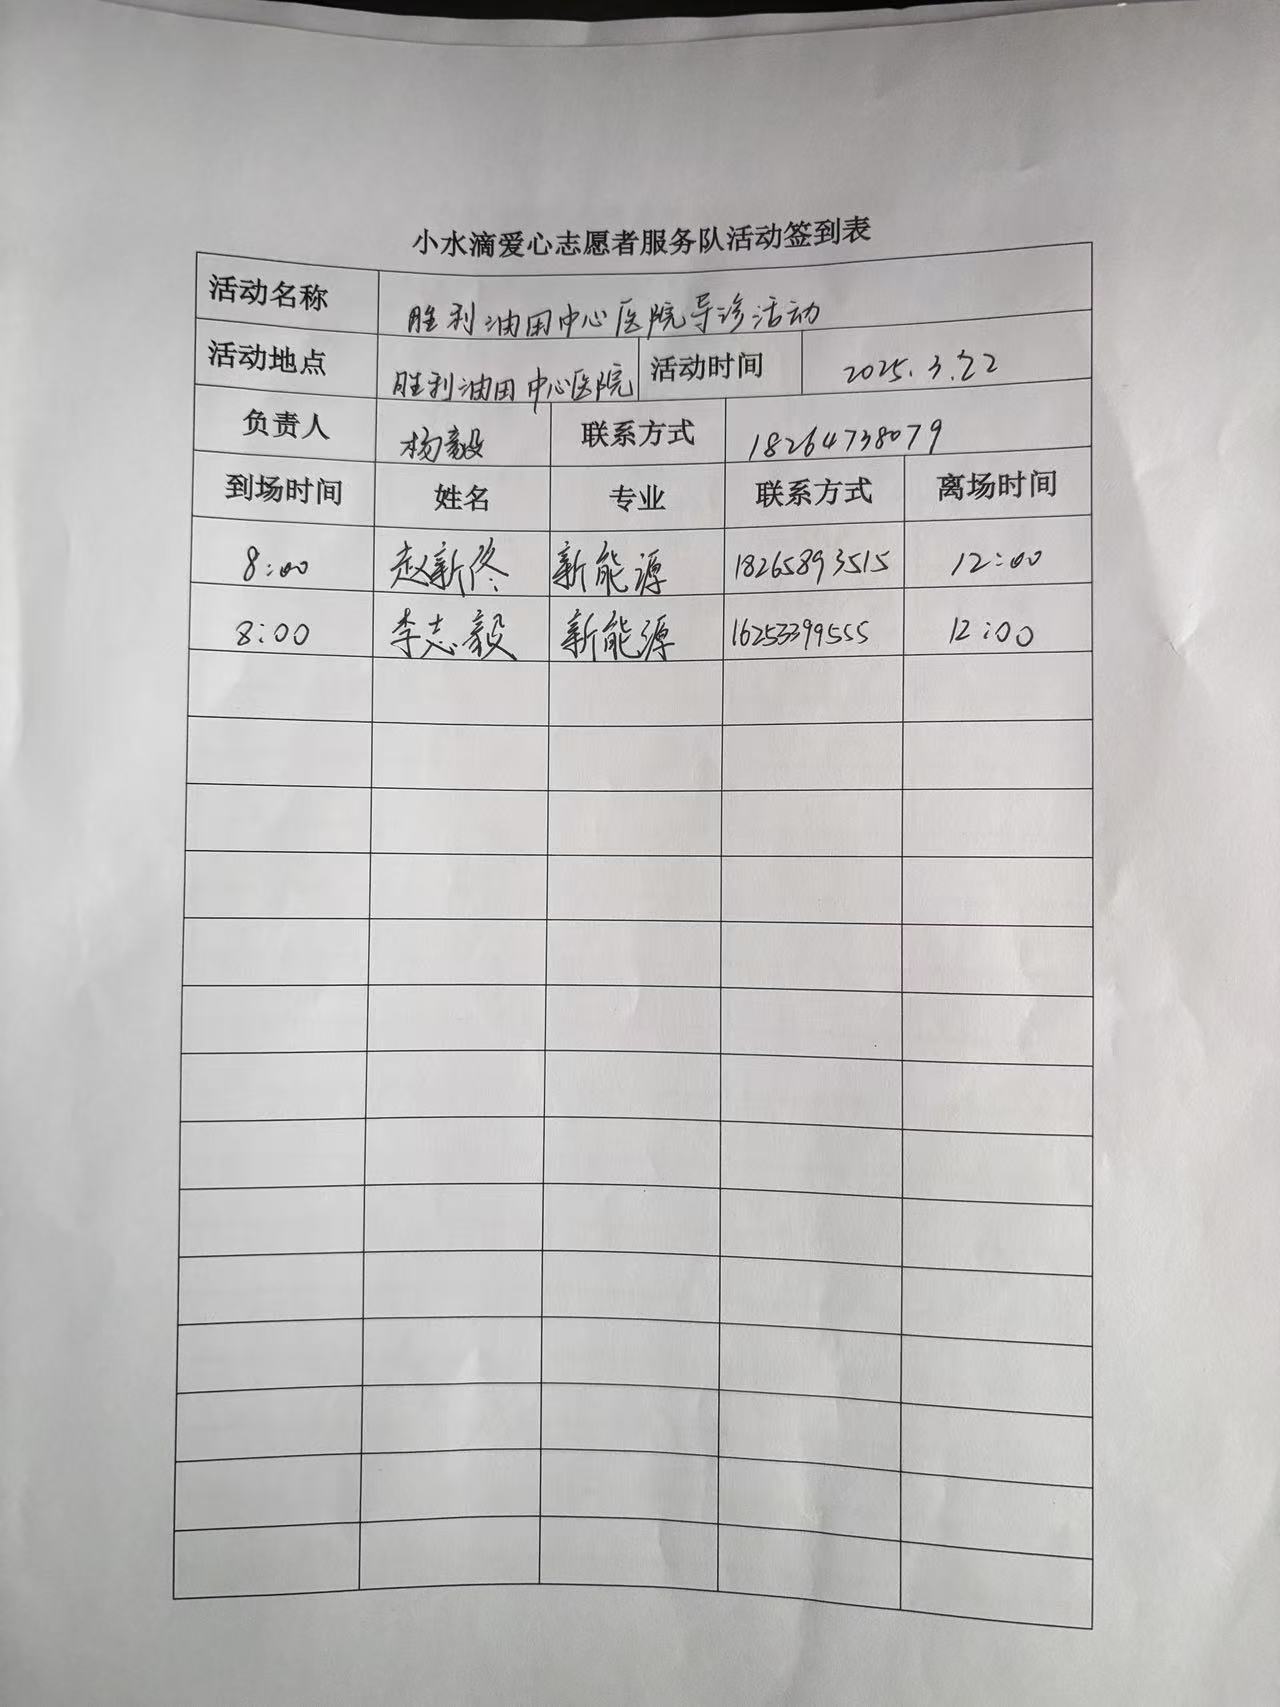 小水滴爱心志愿者服务队活动签到表
活动名称 胜利油田中心医院导诊活动
活动地点 胜利油田中心医院 活动时间 2025.3.22
负责人 杨毅 联系方式 18264738079
到场时间 姓名 专业 联系方式 离场时间
8:00 赵新佟 新能源 18265893515 12:00
8:00 李志毅 新能源 16253399555 12:00